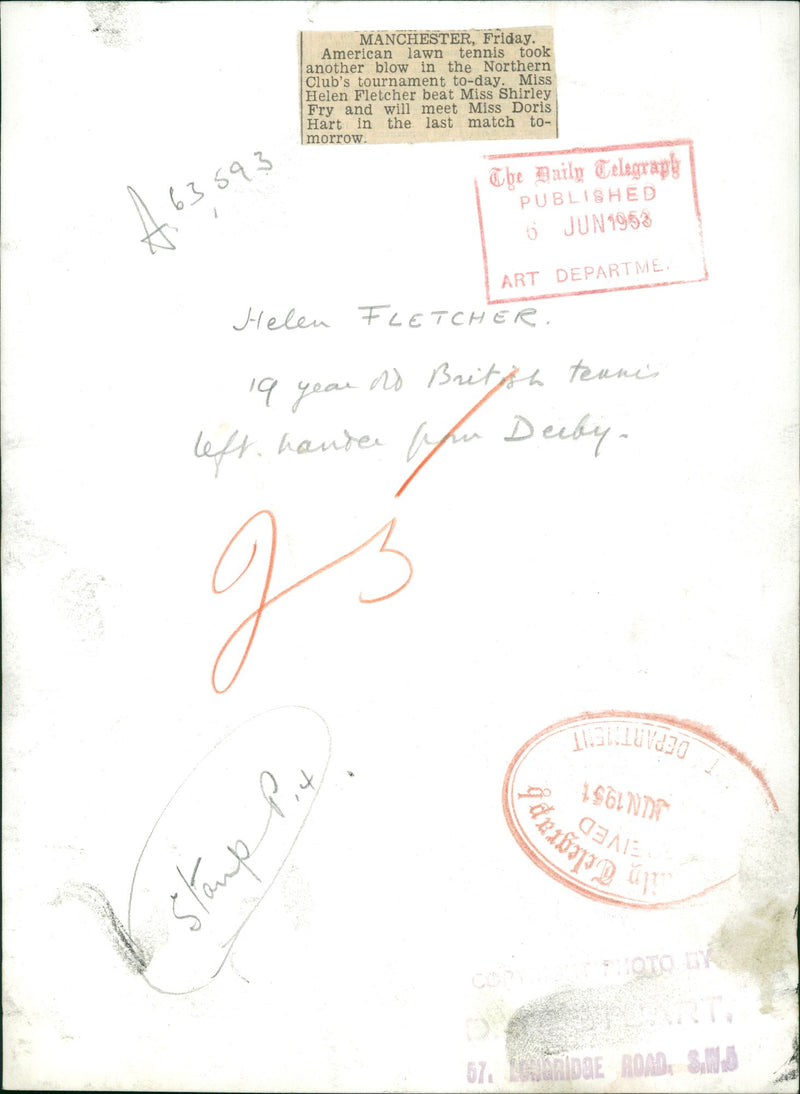 MANCHESTER, Friday.
American lawn tennis took
another blow in the Northern
Club's tournament to-day. Miss
Helen Fletcher beat Miss Shirley
Fry and will meet Miss Doris
Hart in the last match to-
morrow.
A 63,593
The Daily Telegraph
PUBLISHED
6 JUN 1953
ART DEPARTME
Helen FLETCHER.
19 year old British tennis
left. hander from Derby.
Stamp P.4
T DEPARTMENT
JUN 1951
EIVED
ily Telegraph
COPYRIGHT PHOTO BY
57, LONGRIDGE ROAD. S.W.5